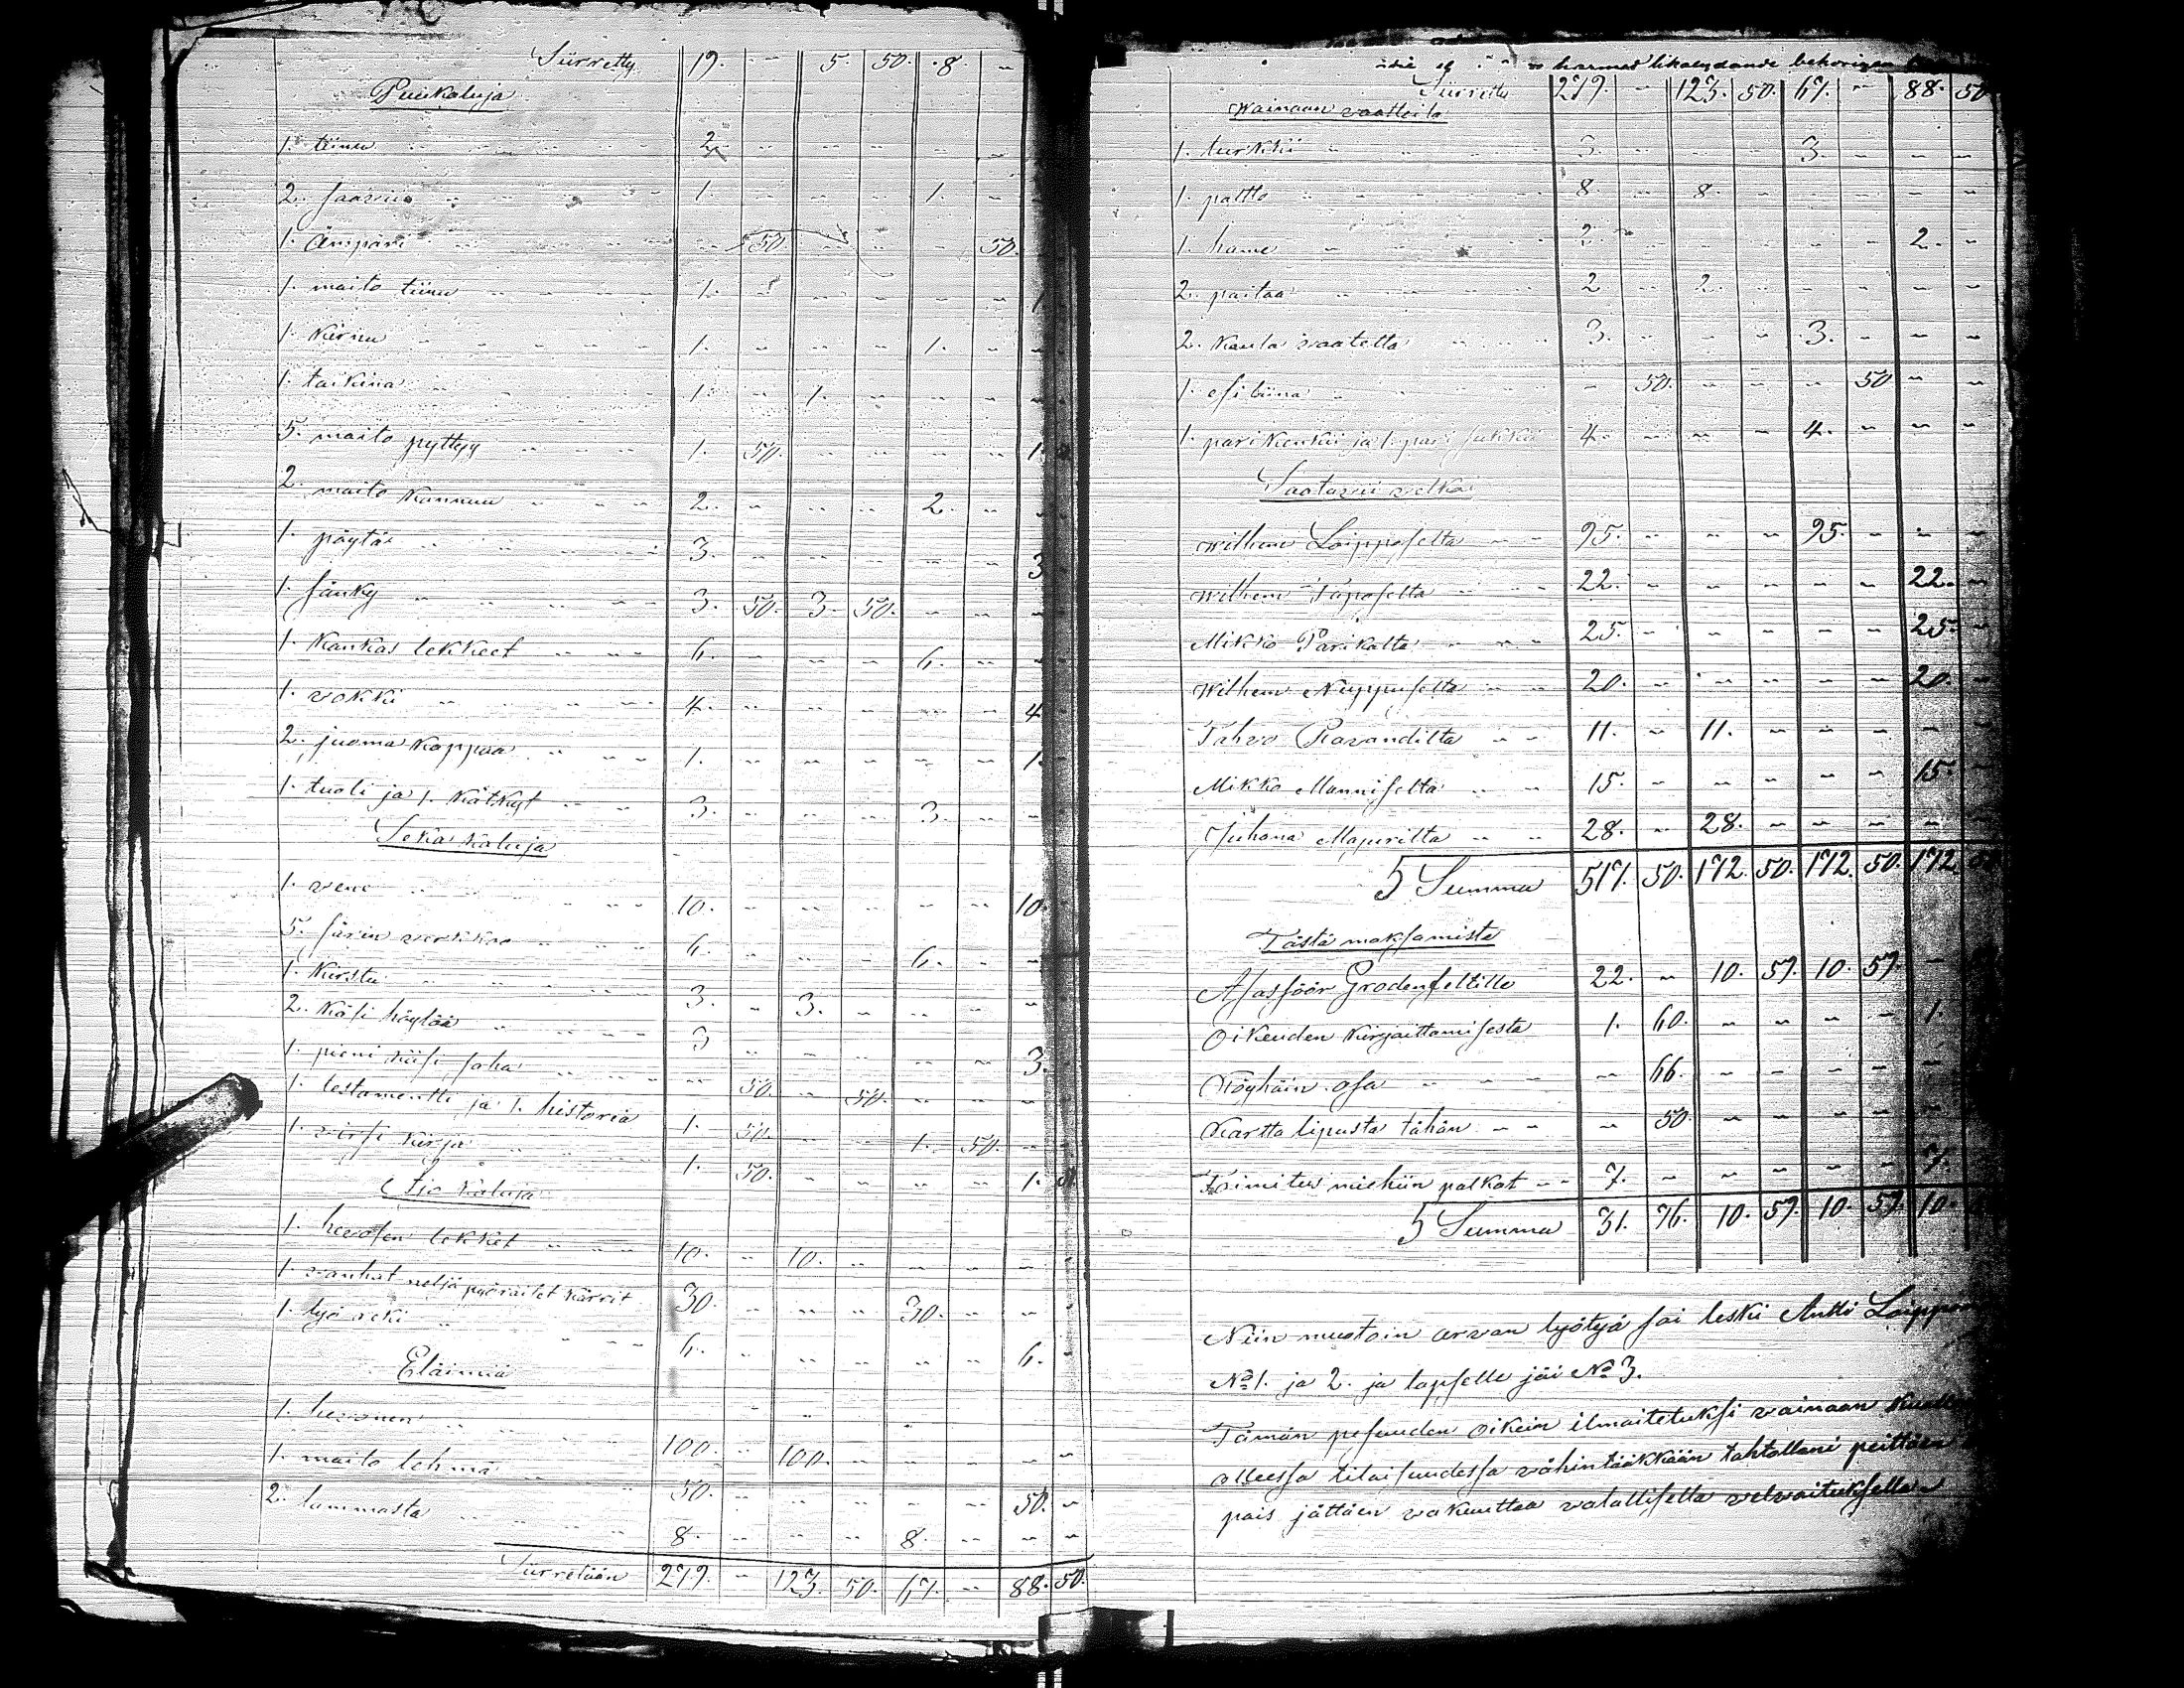 Siirretty 19. - 5. 50. 8. -
Puukaluja
1. tiinu 2. - - - - -
2. saavia 1. - - - 1. -
1. Ämpäri - 50. - - - 50.
1. maito tiinu 1. - - - - - 1
1. kirnu 1. - - - 1. - -
1. taikina 1. - 1. - - - -
5. maito pyttyy 1. 50. - - - - 1.
2. maito kannuu 2. - - - 2. - -
1. pöytä 3. - - - - - 3
1. sänky 3. 50. 3. 50. - - -
1. kankas lekkeet 6. - - - 6. - -
1. vokki 4. - - - - - 4
2. juoma kappaa 1. - - - - - 1. -
1. tuoli ja 1. kätkyt 3. - - - 3. - -
Seka kaluja
1. vene 10. - - - - - 10.
5. särin verkkoo 6. - - - 6. - -
1. kirstu 3. - 3. - - - -
2. käsi höylää 3 - - - - - 3.
1. pieni käsi saha - 50. - 50. - - -
1. testamentti ja 1. historia 1. 50. - - 1. 50. - -
1. virsi kirja 1. 50. - - - - 1. 50.
Ajo kaluja
1. hevosen lekket 10. - 10. - - - - -
1. vanhat neljä pyöräitet kärrit 30. - - - 30. - - -
1. työ reki 6. - - - - - 6. -
Eläimiä
1. hevonen 100. - 100. - - - - -
1. maito lehmä 50. - - - - - 50. -
2. lammasta 8. - - - 8. - - -
Siirretään 279. - 123. 50. 67. - 88. 50.
hvarmed likalydande behörigen
Siirretty 279. - 123. 50. 67. - 88. 50
Wainaan vaatteita
1. turkki 3. - - - 3. - - -
1. paltto 8. - 8. - - - - -
1. hame 2. - - - - - 2. -
2. paitaa 2 - 2. - - - - -
2. kaula vaatetta 3. - - - 3. - - -
1. esiliina - 50. - - - 50 - -
1. pari kenkii ja 1. pari sukkii 4. - - - 4. - - -
Saatavii velkoi
Wilhem Loipposelta 95. - - - 95. - - -
Wilhem Taposelta 22. - - - - - 22. -
Mikko Parikalta 25. - - - - - 25. -
Wilhem Nuppuselta 20. - - - - - 20. -
Tahvo Ravanditta 11. - 11. - - - - -
Mikko Manniselta 15. - - - - - 15. -
Juhana Mapuritta 28. - 28. - - - - -
S Summa 517. 50. 172. 50. 172. 50. 172.
Tästä maksamista
Asassöör Grodenseltille 22. - 10. 57. 10. 57. -
Oikeuden kirjaittamisesta 1. 60. - - - - 1.
Köyhäin osa - 66. - - - - -
Kartta lipusta tähän - 50. - - - - -
Toimitus miehiin palkat 7. - - - - - 7.
S Summa 31. 76. 10. 57. 10. 57. 10.
Niin muotoin arvan lyötyä sai leski Antti Loippo
No 1. ja 2. ja lapselle jäi No 3.
Tämän pesuuden oikein ilmaitetuksi vainaan
olleessa tilaisuudessa vähintäkkään tahtollani peittäen
pois jättäen vakuuttaa valallisella velvoituksella